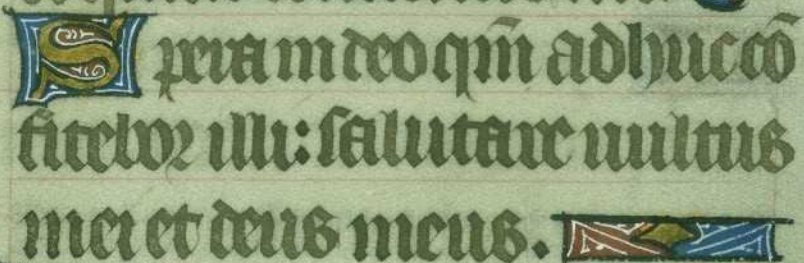 Spera in deo qm̄ adhuc cō
fitebor illi: salutare uultus
mei et deus meus.